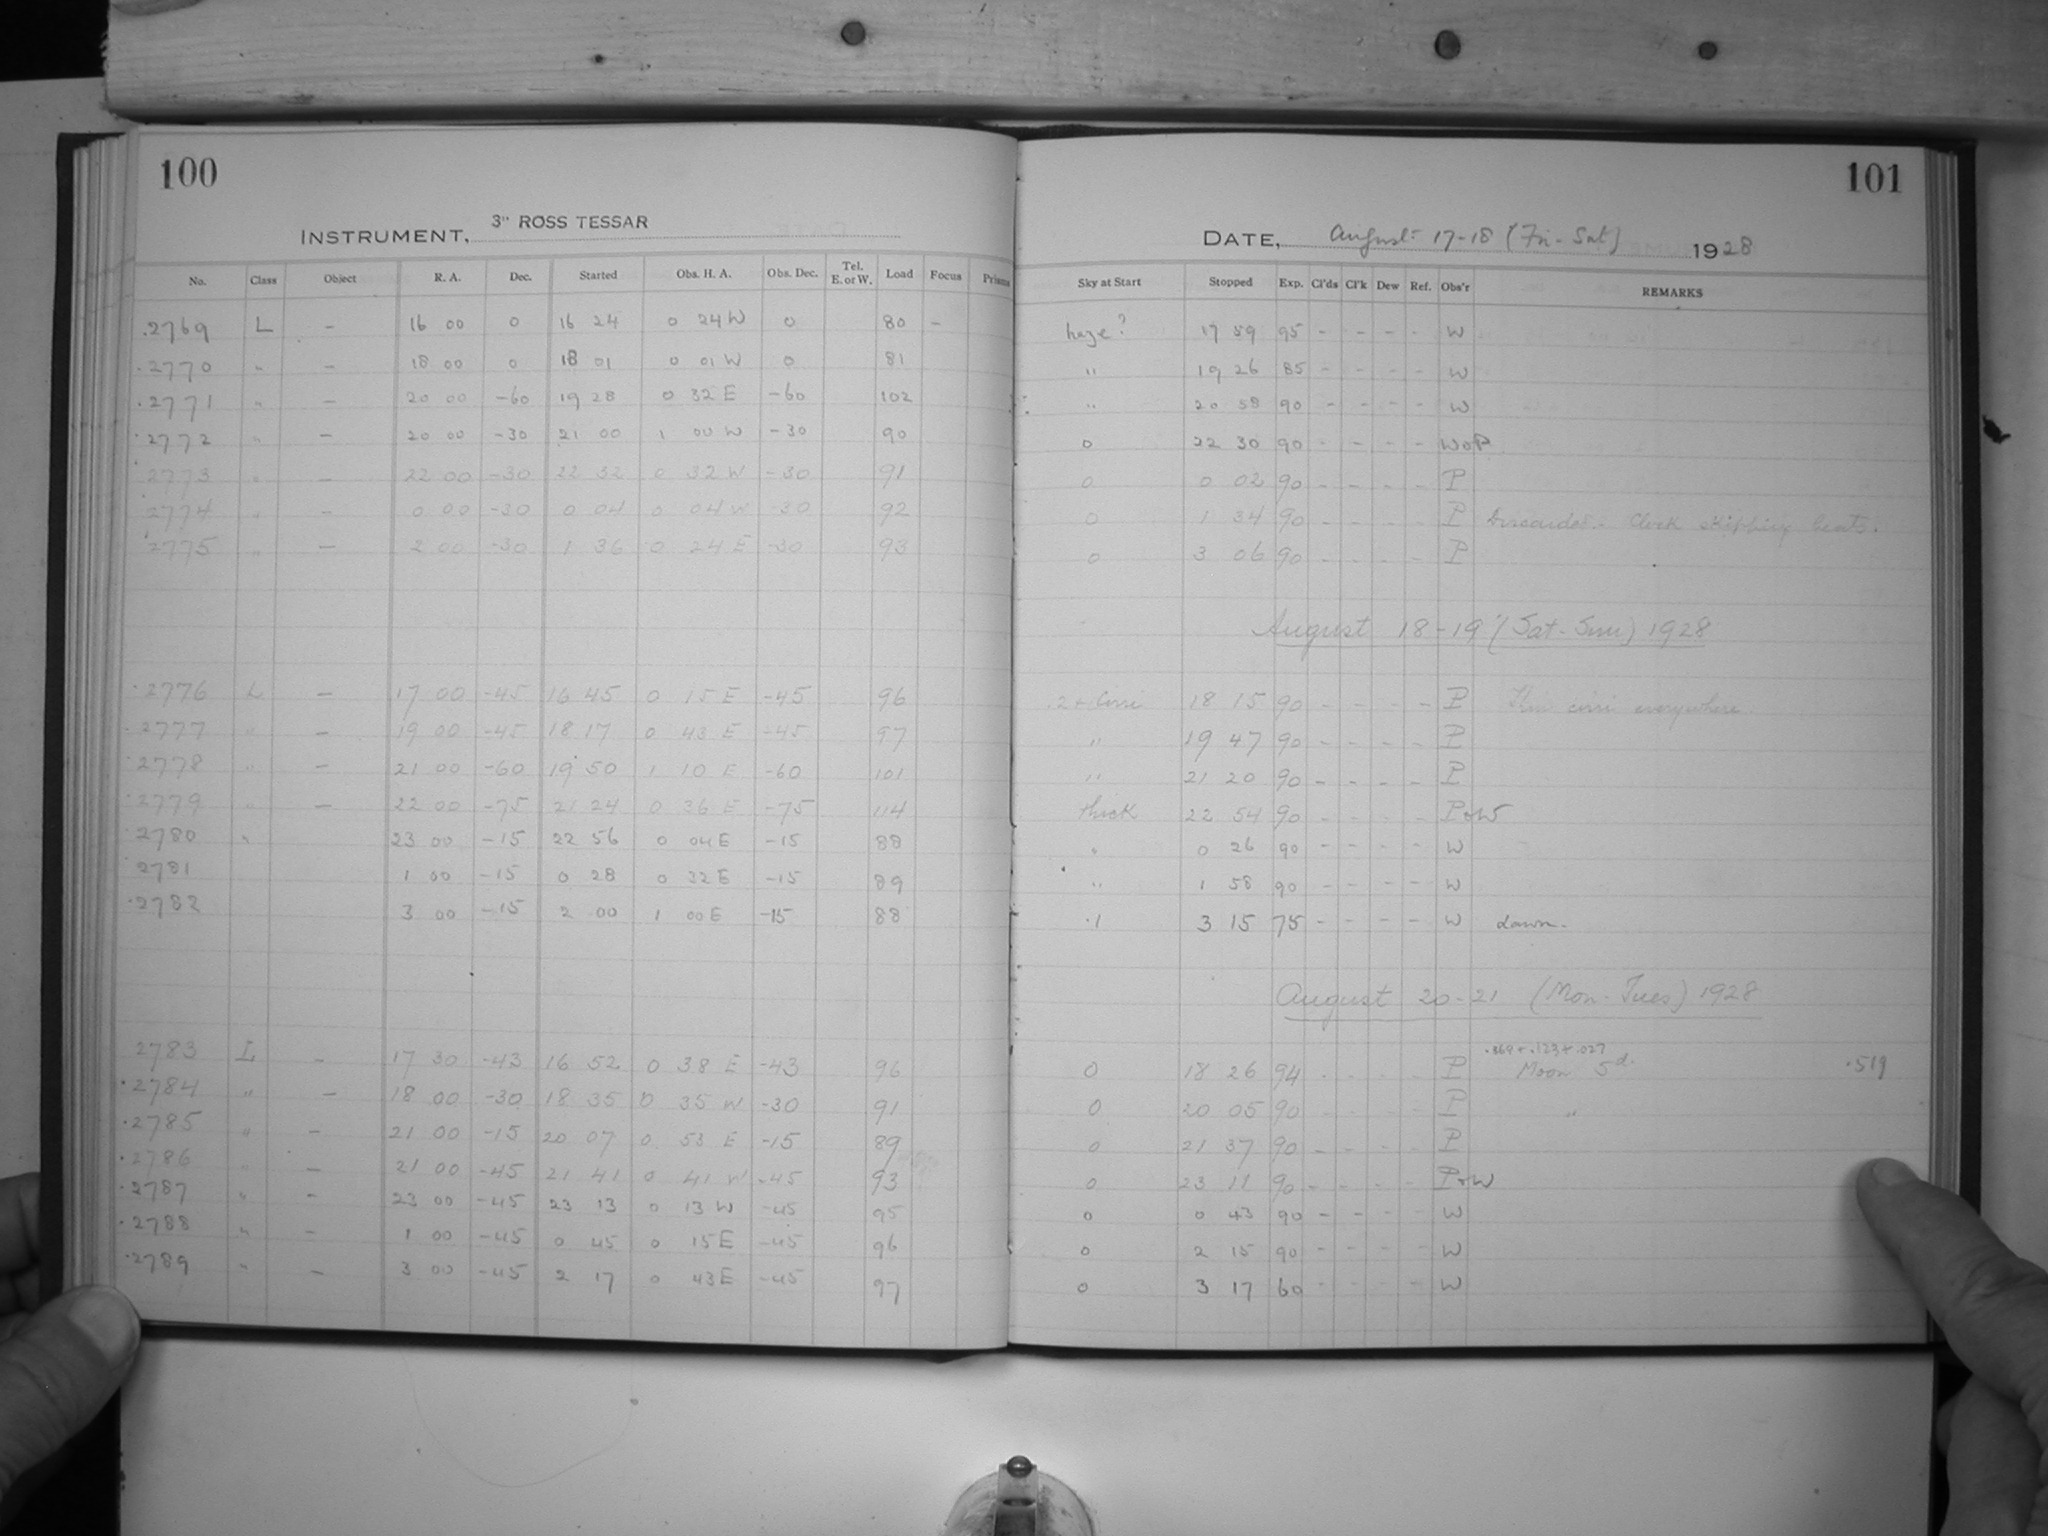 100
INSTRUMENT, 3" ROSS TESSAR
No. Class Object R. A. Dec. Started Obs. H. A. Obs. Dec. Tel. E. or W. Load Focus Prisms
.2769 L - 16 00 0 16 24 0 24 W 0 80 -
.2770 " - 18 00 0 18 01 0 01 W 0 81
.2771 " - 20 00 -60 19 28 0 32 E -60 102
.2772 " - 20 00 -30 21 00 1 00 W -30 90
.2773 " - 22 00 -30 22 32 0 32 W -30 91
.2774 " - 0 00 -30 0 04 0 04 W -30 92
.2775 " - 2 00 -30 1 36 0 24 E -30 93
.2776 L - 17 00 -45 16 45 0 15 E -45 96
.2777 " - 19 00 -45 18 17 0 43 E -45 97
.2778 " - 21 00 -60 19 50 1 10 E -60 101
.2779 " - 22 00 -75 21 24 0 36 E -75 114
.2780 " 23 00 -15 22 56 0 04 E -15 88
.2781 1 00 -15 0 28 0 32 E -15 89
.2782 3 00 -15 2 00 1 00 E -15 88
2783 L - 17 30 -43 16 52 0 38 E -43 96
.2784 " - 18 00 -30 18 35 0 35 W -30 91
.2785 " - 21 00 -15 20 07 0 53 E -15 89
.2786 " - 21 00 -45 21 41 0 41 W -45 93
.2787 " - 23 00 -45 23 13 0 13 W -45 95
.2788 " - 1 00 -45 0 45 0 15 E -45 96
.2789 " - 3 00 -45 2 17 0 43 E -45 97
101
DATE, August 17-18 (Fri-Sat) 1928
Sky at Start Stopped Exp. Cl'ds Cl'k Dew Ref. Obs'r REMARKS
haze? 17 59 95 - - - - W
" 19 26 85 - - - - W
" 20 58 90 - - - - W
0 22 30 90 - - - - W+P
0 0 02 90 - - - - P
0 1 34 90 - - - - P Discarded - Clock skipping beats.
0 3 06 90 - - - - P
August 18-19 (Sat-Sun) 1928
.2 + Cirri 18 15 90 - - - - P Thin cirri everywhere.
" 19 47 90 - - - - P
" 21 20 90 - - - - P
thick 22 54 90 - - - - P+W
" 0 26 90 - - - - W
" 1 58 90 - - - - W
.1 3 15 75 - - - - W dawn.
August 20-21 (Mon-Tues) 1928
.369+.123+.027
0 18 26 94 - - - - P Moon 5d. .519
0 20 05 90 - - - - P "
0 21 37 90 - - - - P
0 23 11 90 - - - - P+W
0 0 43 90 - - - - W
0 2 15 90 - - - - W
0 3 17 60 - - - - W